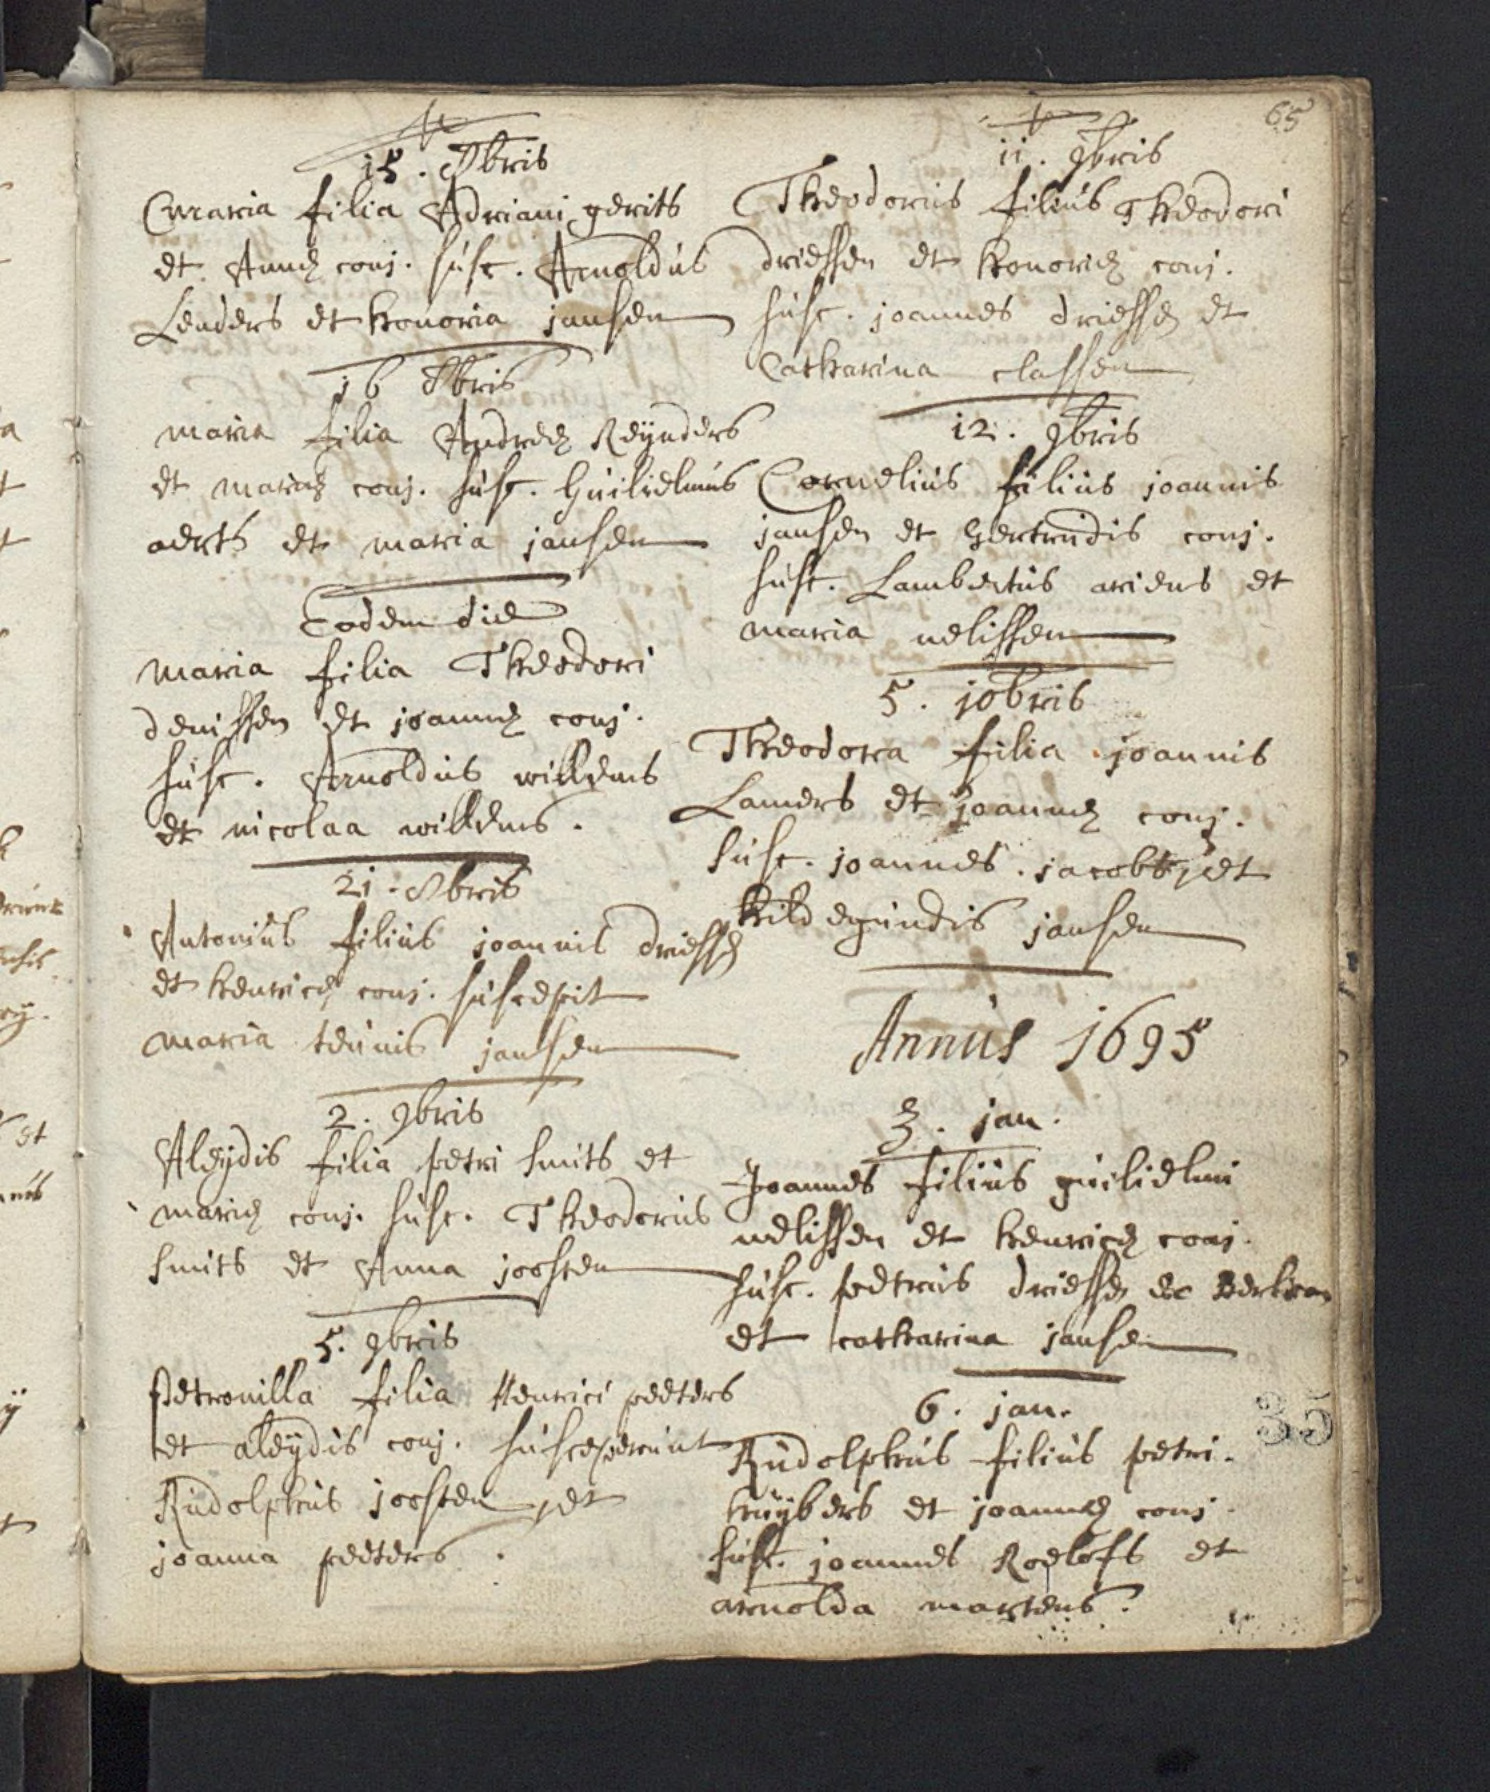 65
15. 8bris
Maria filia Adriani gerits
et Annæ conj. susc. Arnoldus
Lenders et honoria jansen
16 8bris
maria filia Andreæ Reynders
et mariæ conj. susc. Guilielmus
aerts et maria jansen
Eodem die
maria filia Theodori
denissen et joannæ conj.
susc. Arnoldus willems
et nicolaa willems.
21. 8bris
Antonius filius joannis driessen
et henricæ conj. suscepit
maria teunis jansen
2. 9bris
Aleydis filia petri smits et
mariæ conj. susc. Theodorus
smits et Anna joosten
5. 9bris
Petronilla filia Henrici peeters
et aleydis conj. susceperunt
Rudolphus joosten, et
joanna peeters.
11. 9bris
Theodorus filius Theodori
driessen et honoriæ conj.
susc. joannes driessen et
Catharina classen
12. 9bris
Cornelius filius joannis
jansen et Gertrudis conj.
susc. Lambertus ariens et
maria nelissen
5. 10bris
Theodora filia joannis
Lamers et joannæ conj.
susc. joannes. jacobs, et
hildegundis jansen
Annus 1695
3. jan.
Joannes filius guilielmi
nelissen et henricæ conj.
susc. petrus driessen
et catharina jansen
6. jan.
Rudolphus filius petri.
huijbers et joannæ conj.
susc. joannes Roelofs et
arnolda martens.
35